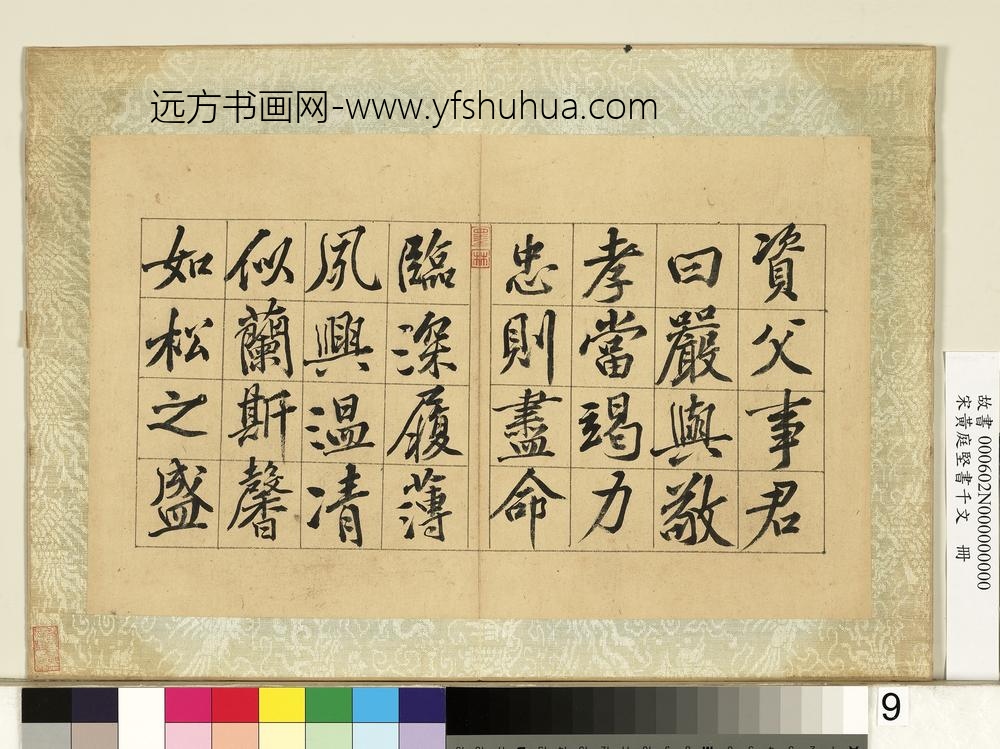 远方书画网-www.yfshuhua.com
資父事君
曰嚴與敬
孝當竭力
忠則盡命
臨深履薄
夙興溫凊
似蘭斯馨
如松之盛
故書 000602N000000000
宋黃庭堅書千文 冊
9